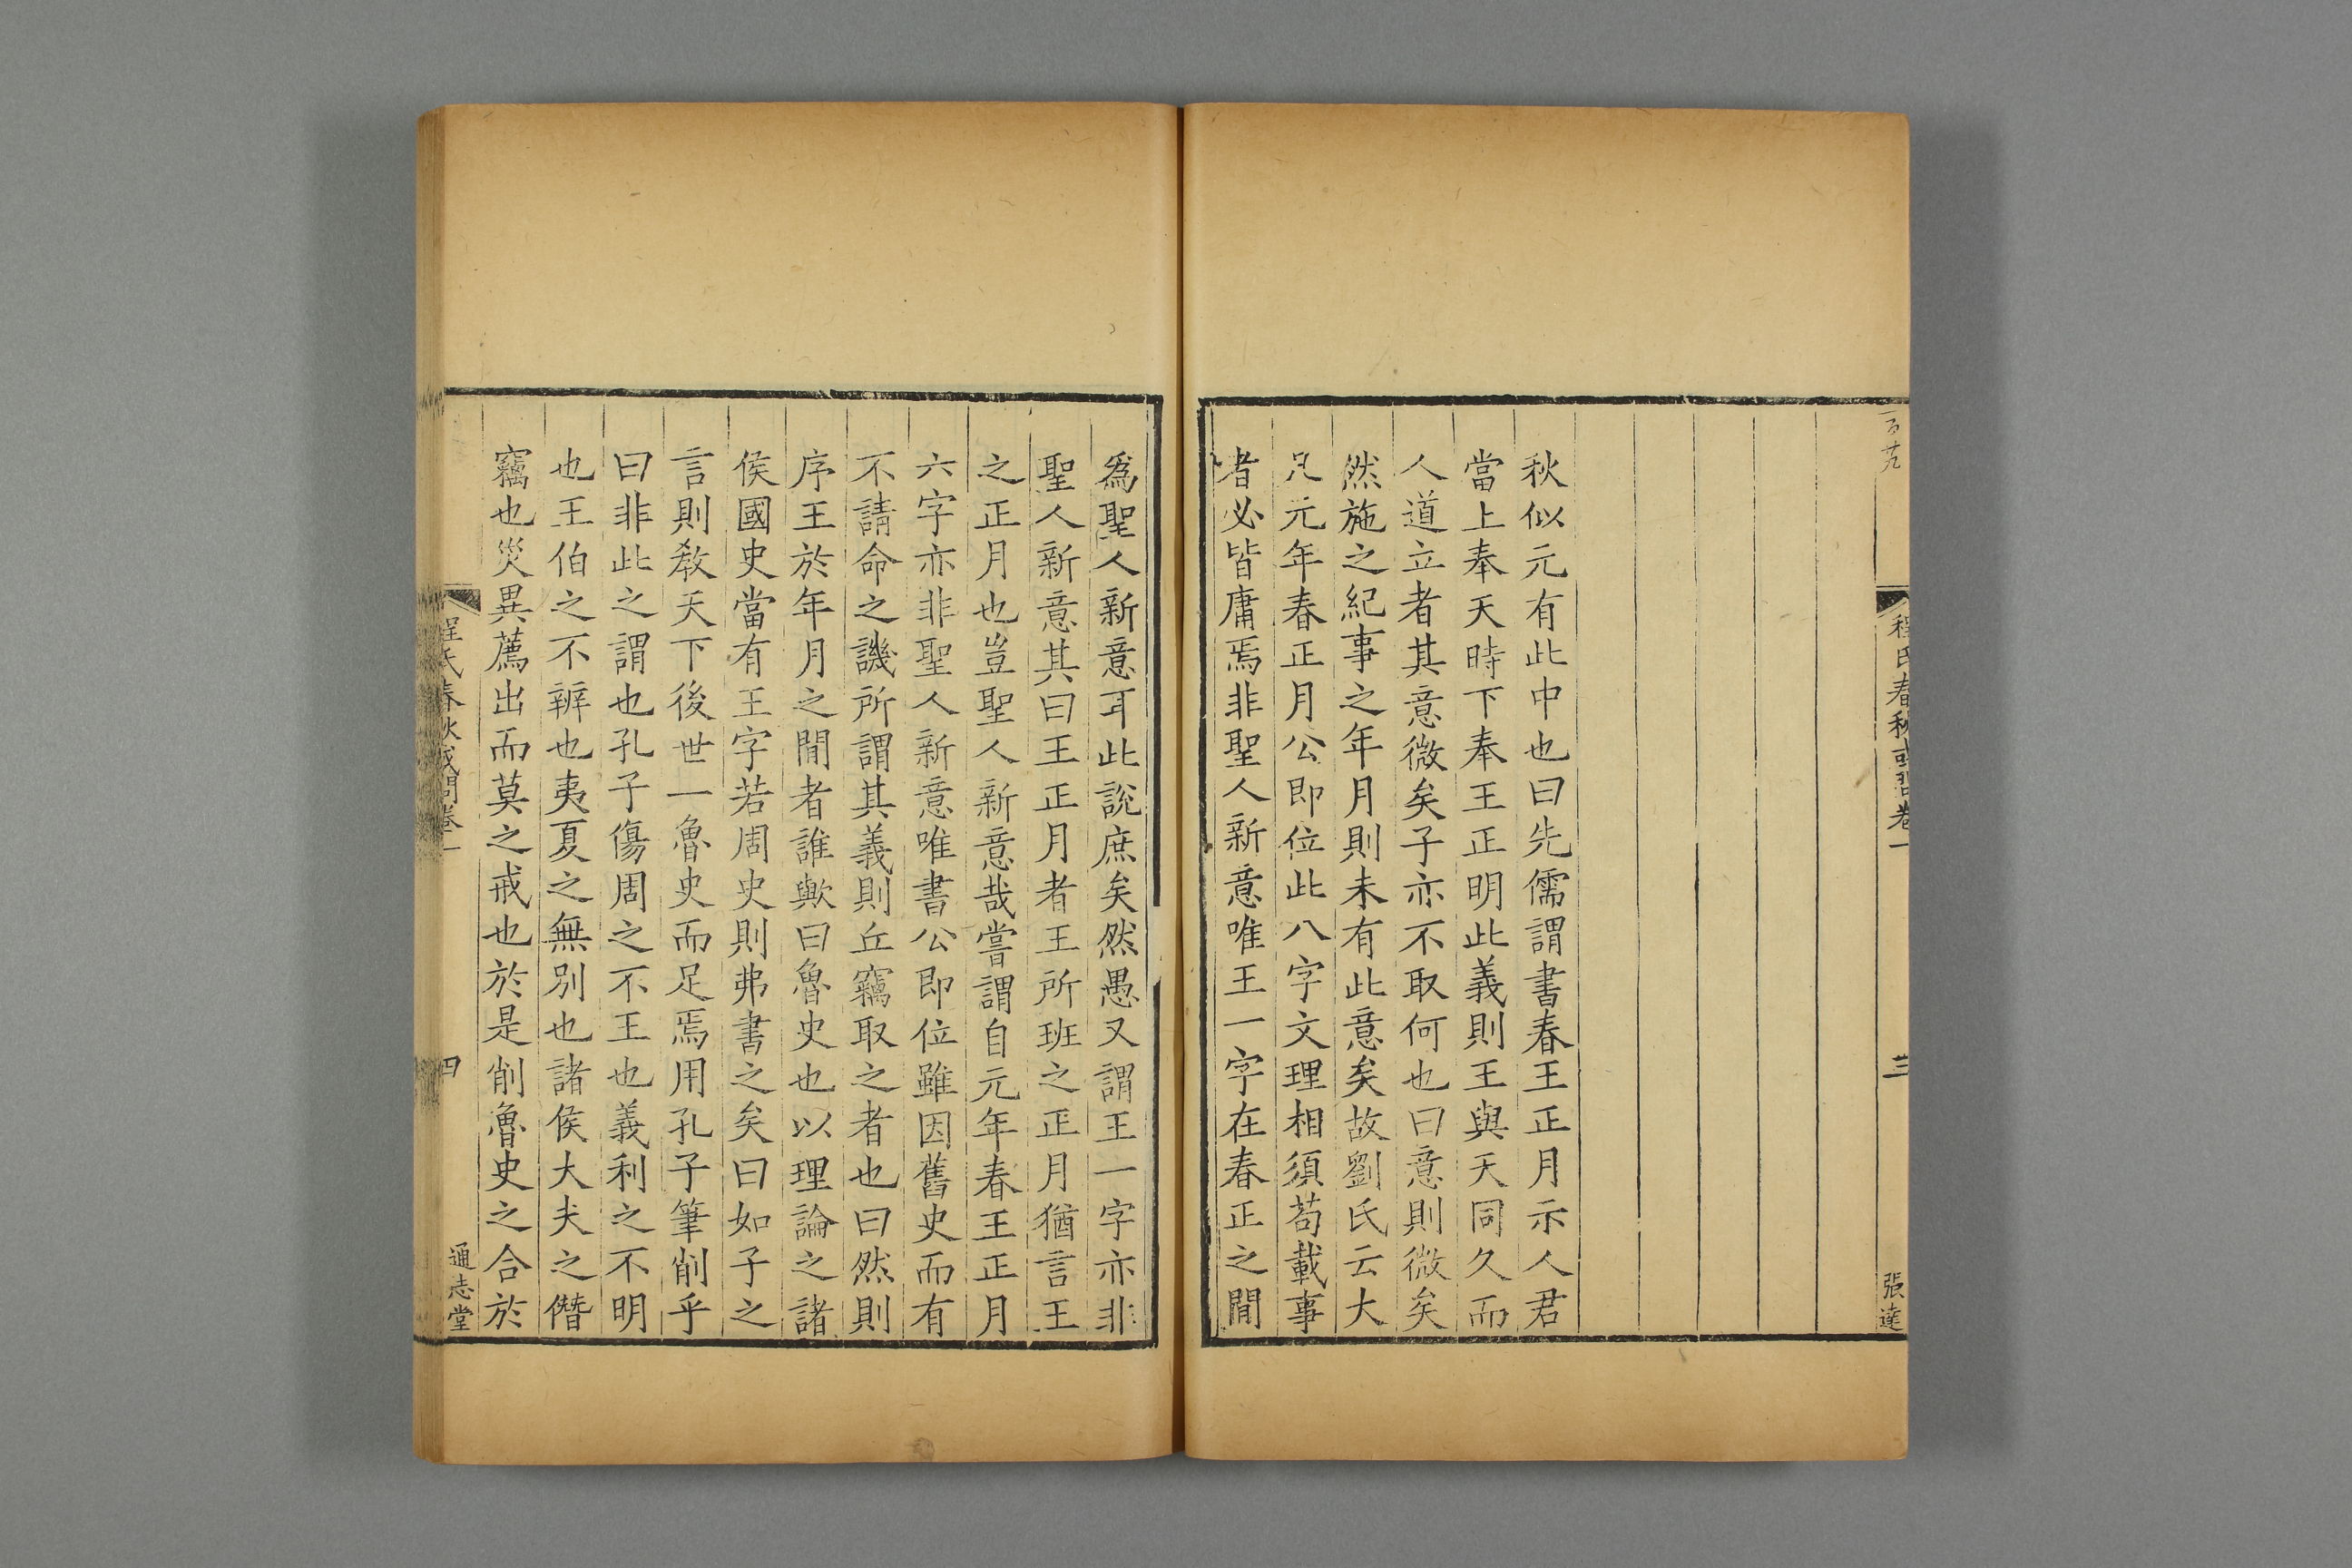 程氏春秋或問卷一
三
張達
秋似元有此中也曰先儒謂書春王正月示人君
當上奉天時下奉王正明此義則王與天同久而
人道立者其意微矣子亦不取何也曰意則微矣
然施之紀事之年月則未有此意矣故劉氏云大
凡元年春正月公即位此八字文理相須苟載事
者必皆庸焉非聖人新意唯王一字在春正之間
爲聖人新意耳此說庶矣然愚又謂王一字亦非
聖人新意其曰王正月者王所班之正月猶言王
之正月也豈聖人新意哉嘗謂自元年春王正月
六字亦非聖人新意唯書公即位雖因舊史而有
不請命之譏所謂其義則丘竊取之者也曰然則
序王於年月之間者誰歟曰魯史也以理論之諸
侯國史當有王字若周史則弗書之矣曰如子之
言則教天下後世一魯史而足焉用孔子筆削乎
曰非此之謂也孔子傷周之不王也義利之不明
也王伯之不辨也夷夏之無別也諸侯大夫之僭
竊也災異薦出而莫之戒也於是削魯史之合於
程氏春秋或問卷一
四
通志堂